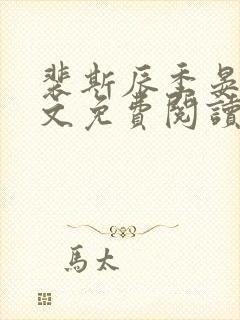 裴斯辰季晏
文免費閱讀
馬太